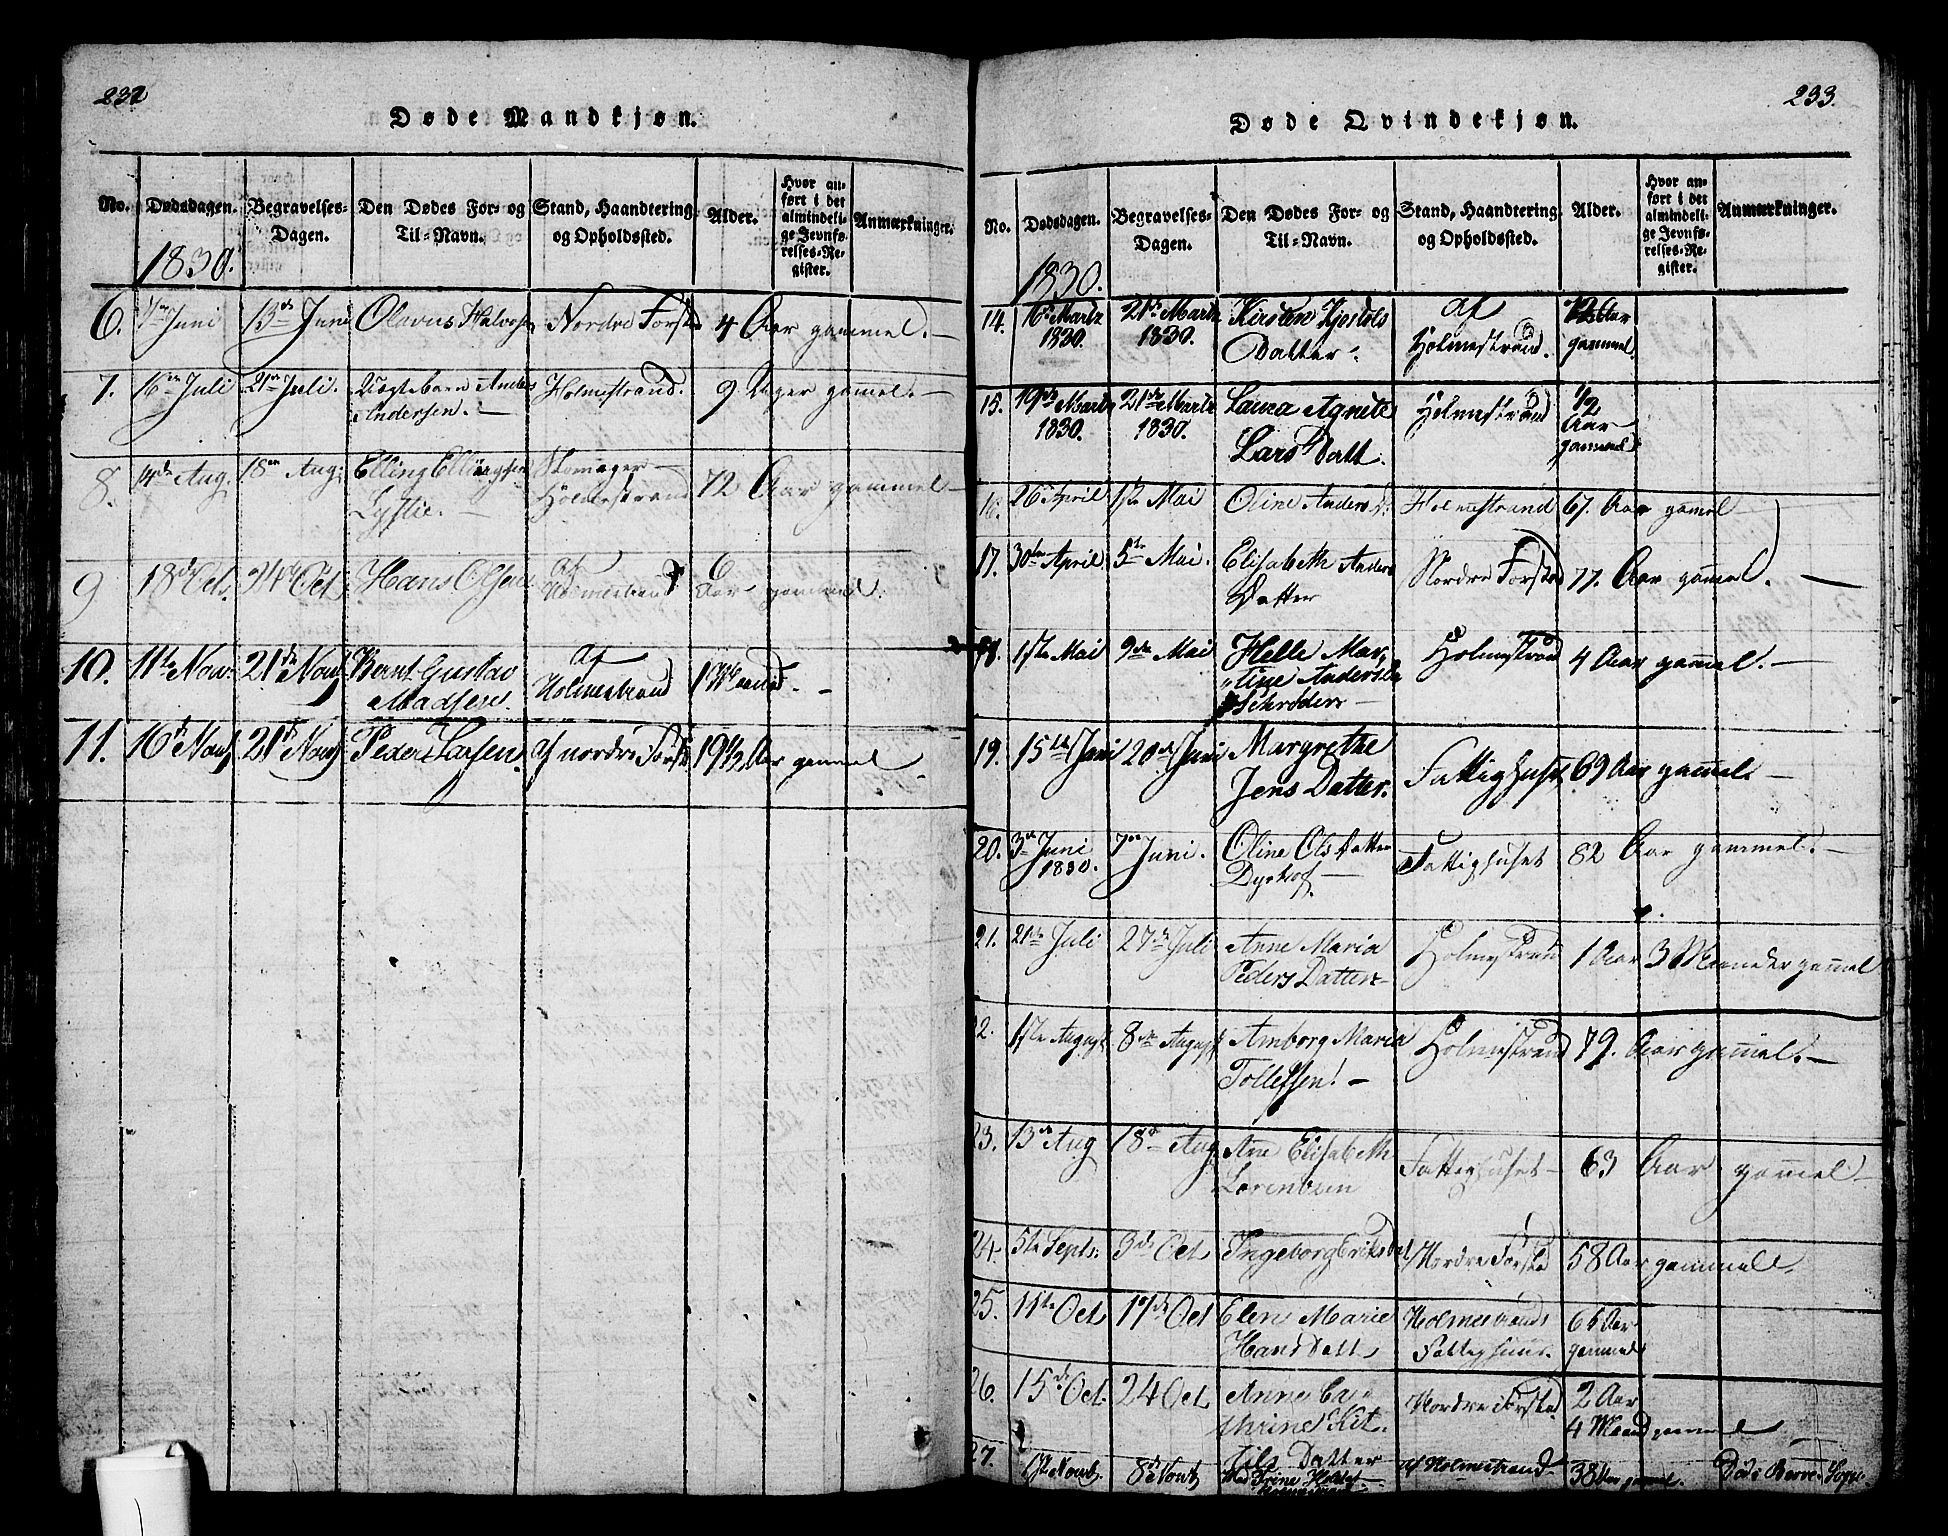 232
Døde Mandkjøn.
No. Dødsdagen. Begravelses-Dagen. Den Dødes For- og Til-Navn. Stand, Haandtering og Opholdssted. Alder. Hvor anført i det almindelige Jevnførelses-Register. Anmærkninger.
1830.
6. 7de Juni 13de Juni Olavus Halvorsen Nordre Forstad 4 Aar gammel.
7. 16de Juli 21de Juli. Uægtebarn Anders Holmestrand. 9 Dager gamel.
Andersen.
8. 14de Aug. 18de Aug: Elling Ellingsen Skomager 72 Aar gammel
Holmestrand
9 18de Oct. 24de Oct. Hans Olsen af 6
Holmestrand Aar gammel.
10. 11te Nov: 21de Novb Bernt Gustav af 1 Maaned.
Madsen. Holmestrand
11. 16de Novb 21de Novb Peder Larsen. af nordre Forstad 19 1/2 Aar gammel
233.
Døde Qvindekjøn.
No. Dødsdagen. Begravelses-Dagen. Den Dødes For- og Til-Navn. Stand, Haandtering og Opholdssted. Alder. Hvor anført i det almindelige Jevnførelses-Register. Anmærkninger.
1830.
14. 16de Martz 21de Martz Kirsten af Aar
1830. 1830. Datter. Holmestrand. gammel.
15. 19de Martz 21de Martz Laura Agnete Holmestrand 1/2
1830. 1830. Lars Datt. Aar
gammel
16. 26de April 1ste Mai Oline Anders D. Holmestrand 67. Aar gamel
17. 30te April 5te Mai. Elisabeth Anders Nordre Forstad 77. Aar gamel.
Datter
18. 1ste Mai 9de Mai Helle Mar- Holmestrand 4 Aar gammel.
tine Anders
Schrøder
19. 15de Juni 20de Juni Margrethe Fattighuset 69 Aar gamel.
Jens Datter.
20. 3de Juni 7de Juni. Oline Ols Datter Fattighuset 82 Aar gammel.
1830. Dyrhof.
21. 21de Juli 27de Juli Anne Maria Holmestrand 1 Aar 3 Maaneder gamel
Peders Datter
22. 1ste August 8de August Amborg Maria Holmestrand 79. Aar gamel.
Tollefsen!
23. 13de Aug 18de Aug Ane Elisabeth Fattighuset 63 Aar gamel.
Lorentzen
24. 5te Septs: 3de Oct Ingeborg Eriksdat Nordre Forstad 58 Aar gammel.
25. 11te Oct 17de Oct Elen Marie Holmestrands 66 Aar
Hans Datt Fattighuus. gammel
26. 15de Oct. 24 Oct. Anne Ca- Nordre Forstad. 2 Aar
thrine Kit. 4 Maaned gammel
27. Nils Datter
Novb. 8de Novb Trine af Holmestrand 38 Aar gamel. Døde Sogn